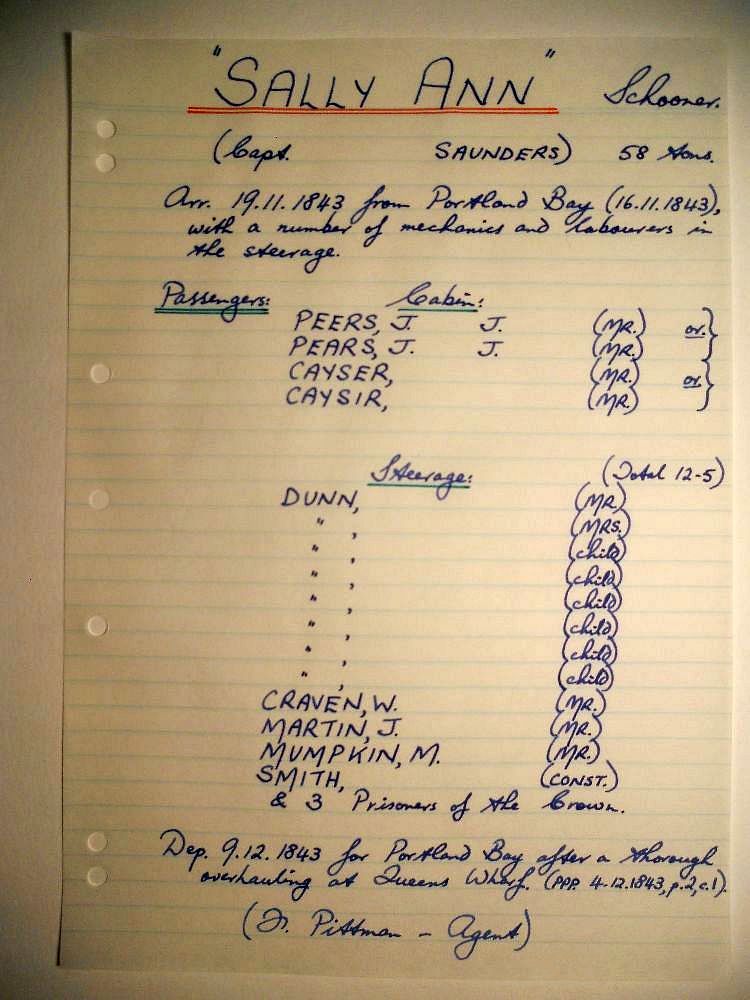 "SALLY ANN" Schooner.
(Capt. SAUNDERS) 58 tons.
Arr. 19.11.1843 from Portland Bay (16.11.1843),
with a number of mechanics and labourers in
the steerage.
Passengers: Cabin:
PEERS, J. J. (MR.) or.}
PEARS, J. J. (MR.)
CAYSER, (MR.) or.}
CAYSIR, (MR.)
Steerage: (Total 12-5)
DUNN, (MR.)
" , (MRS.)
" , (child)
" , (child)
" , (child)
" , (child)
" , (child)
" , (child)
CRAVEN, W. (MR.)
MARTIN, J. (MR.)
MUMPKIN, M. (MR.)
SMITH, (CONST.)
& 3 Prisoners of the Crown.
Dep. 9.12.1843 for Portland Bay after a thorough
overhauling at Queens Wharf. (PPP. 4.12.1843, p.2, c.1).
Pittman - Agent)